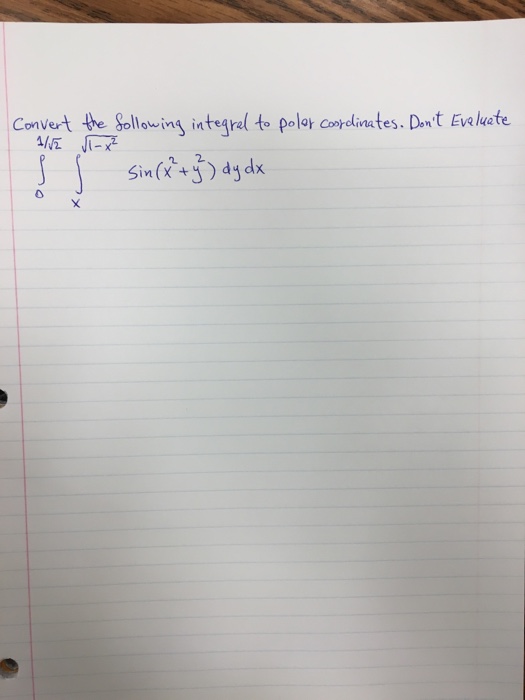 Convert the following integral to polar coordinates. Don't Evaluate
1/√2 √1-x²
∫ ∫ sin(x²+y²) dy dx
0 x